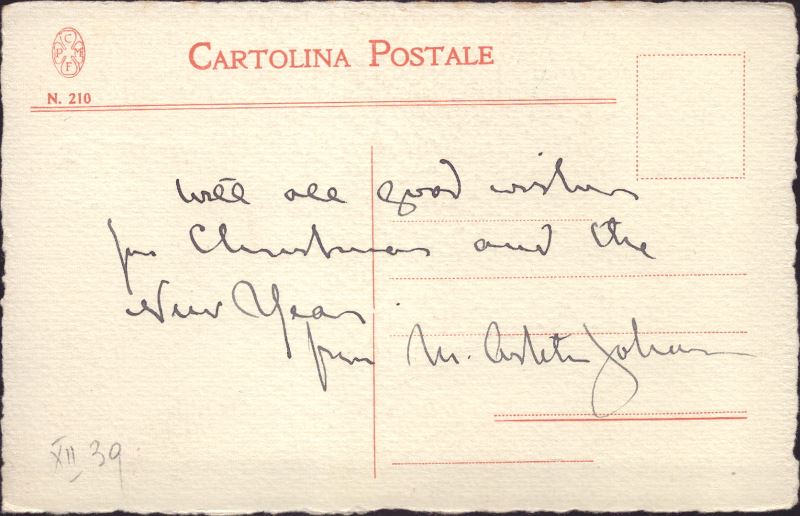 C
P M
F
CARTOLINA POSTALE
N. 210
with all good wishes
for Christmas and the
New Year.
from M. Johnson
XII 39